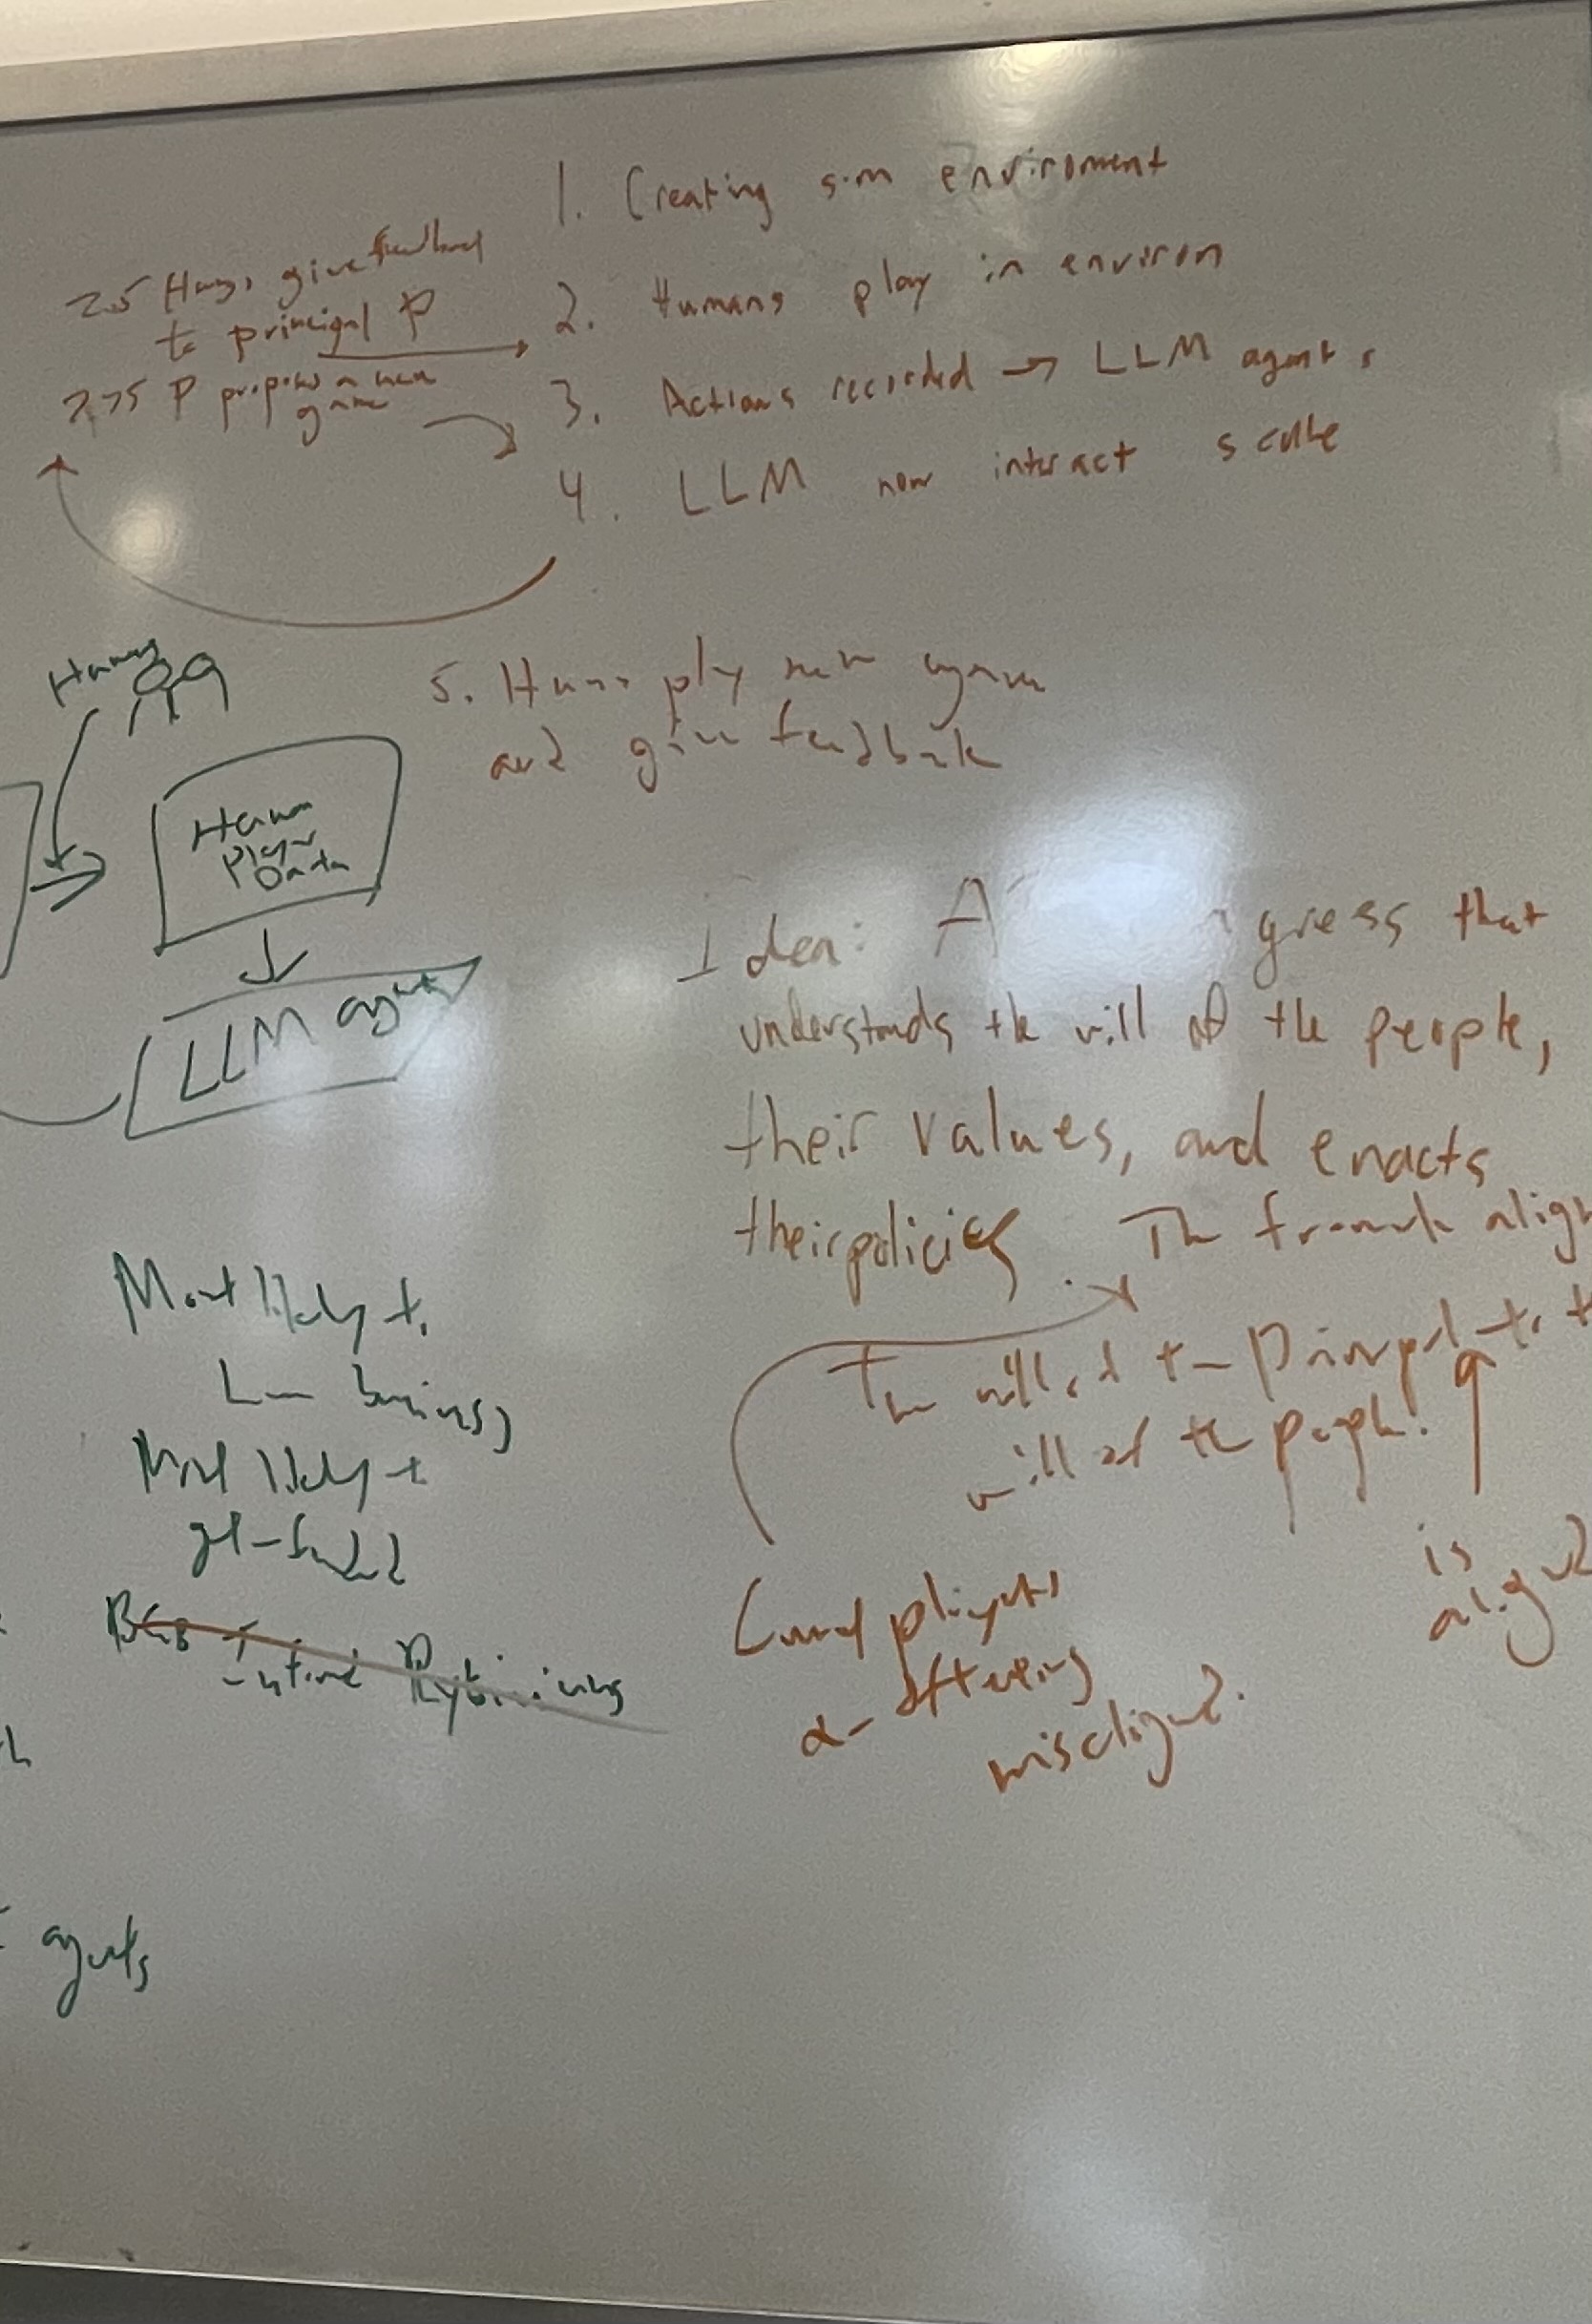 1. Creating sim enviroment
2.5 give feedback
to principal P
2. Humans play in environ
2.75 P proposes a new
game
3. Actions recorded → LLM agents
4. LLM now interact scale
Humans
5. Humans play new game
and give feedback
Human
Player
Data
LLM agent
Idea: A gress that
understands the will of the people,
their values, and enacts
their policies
The framework align
The will of the Principal to t
will of the people.
Most likely to
business
Most likely to
get funded
is
often
misaligned.
agents